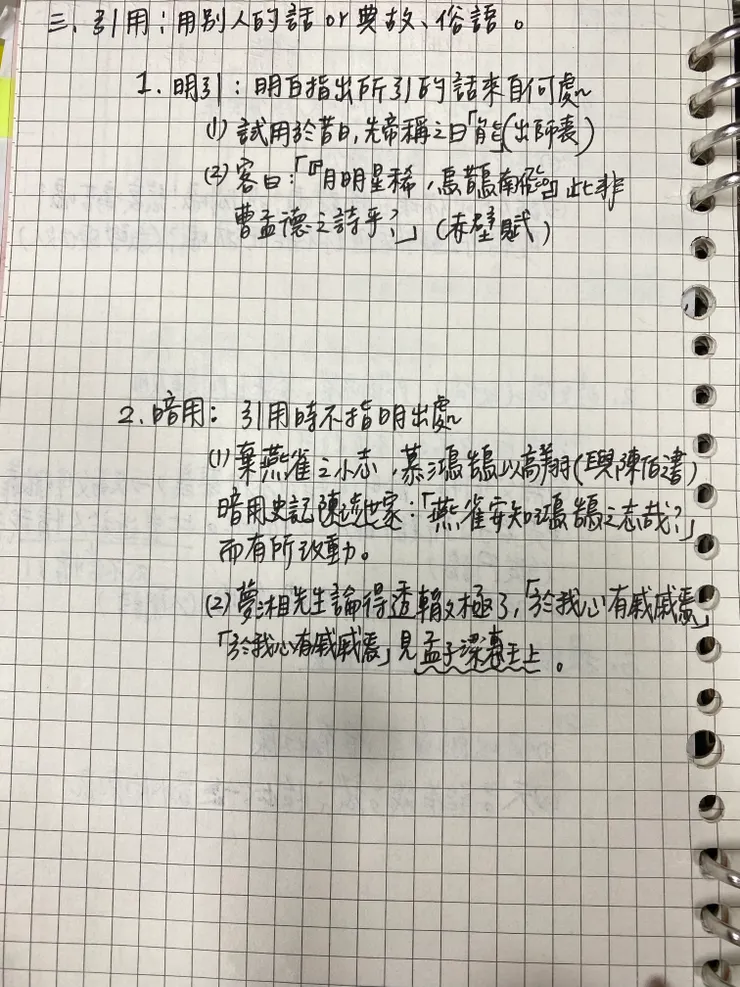 三、引用：用別人的話 or 典故、俗語。
1. 明引：明白指出所引的話來自何處
(1) 試用於昔日，先帝稱之曰「能」(出師表)
(2) 客曰：「『月明星稀，烏鵲南飛』此非
曹孟德之詩乎？」(赤壁賦)
2. 暗用：引用時不指明出處
(1) 棄燕雀之小志，慕鴻鵠以高翔(與陳伯書)
暗用史記陳涉世家：「燕雀安知鴻鵠之志哉？」
而有所改動。
(2) 夢湘先生論得透闢極了，「於我心有戚戚焉」
「於我心有戚戚焉」見孟子梁惠王上。